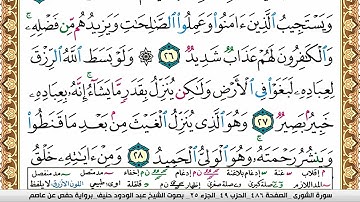 وَيَسْتَجِيبُ الَّذِينَ ءَامَنُوا۟ وَعَمِلُوا۟ الصَّـٰلِحَـٰتِ وَيَزِيدُهُم مِّن فَضْلِهِۦ ۚ
وَالْكَـٰفِرُونَ لَهُمْ عَذَابٌ شَدِيدٌ ٢٦ ۞ وَلَوْ بَسَطَ اللَّهُ الرِّزْقَ
لِعِبَادِهِۦ لَبَغَوْا۟ فِى الْأَرْضِ وَلَـٰكِن يُنَزِّلُ بِقَدَرٍ مَّا يَشَآءُ ۚ إِنَّهُۥ بِعِبَادِهِۦ
خَبِيرٌۢ بَصِيرٌ ٢٧ وَهُوَ الَّذِى يُنَزِّلُ الْغَيْثَ مِنۢ بَعْدِ مَا قَنَطُوا۟
وَيَنشُرُ رَحْمَتَهُۥ ۚ وَهُوَ الْوَلِىُّ الْحَمِيدُ ٢٨ وَمِنْ ءَايَـٰتِهِۦ خَلْقُ
سورة الشورى الصفحة ٤٨٦ الحزب ٤٩ الجزء ٢٥ بصوت الشيخ عبد الودود حنيف برواية حفص عن عاصم